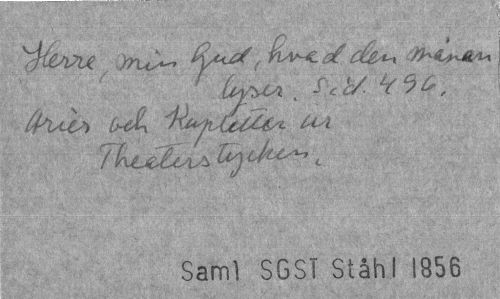 Herre, min Gud, hvad den månan
lyser. Sid. 496.
Arier och Kupletter ur
Theaterstycken.
Saml SGST Ståhl 1856